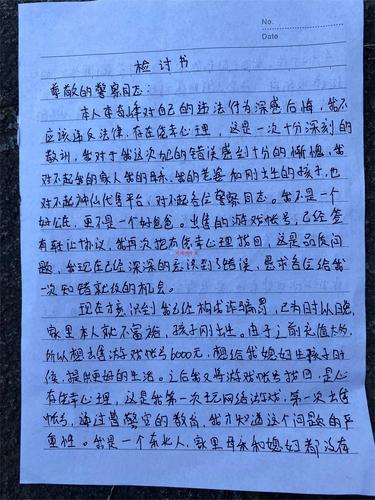 No.
Date
检讨书
尊敬的警察同志:
本人 对自己的违法行为深感后悔,我不
应该违反法律,存在侥幸心理,这是一次十分深刻的
教训,我对于我这次犯的错误感到十分的惭愧,我
对不起我的家人我的母亲,我的老婆和刚出生的孩子,也
对不起 代售平台,对不起各位警察同志。我不是一个
好公民,更不是一个好爸爸。出售的游戏帐号,已经签
有转让协议,我再次抱有侥幸心理找回,这是品质问
题,我现在已经深深的意识到了错误,恳求各位给我
一次知错就改的机会。
现在才意识到我已经构成诈骗罪,已为时以晚,
家里本人就不富裕,孩子刚出生。由于之前充值太多,
所以想出售游戏帐号6000元,想给我媳妇生孩子时
候,提供更好的生活。之后我又将游戏帐号找回,是心
存侥幸心理,这是我第一次玩网络游戏,第一次出售
帐号,通过警官的教育,我才知道这个问题的严
重性。我是一个东北人,家里母亲和媳妇都没有